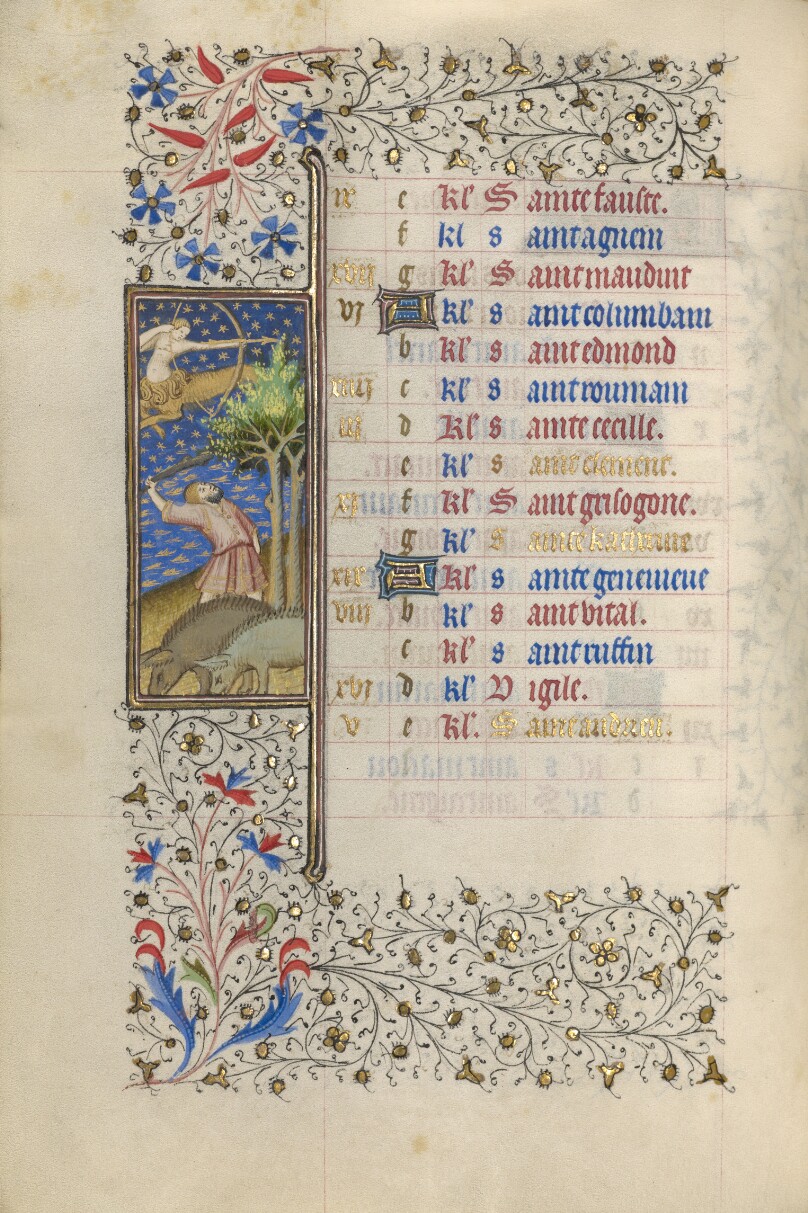 ix e kl' Sainte fauste.
f kl saint agnein
xvij g kl' Saint mauduit
vj A kl' saint columbain
b kl' saint edmond
xiiij c kl' saint roumain
iij d kl' sainte cecille.
e kl' saint clement.
xj f kl' Saint grisogone.
g kl' Sainte katherine
xix A kl' sainte genevieve
viij b kl' saint vital.
c kl' saint ruffin
xvj d kl' Vigile.
v e kl'. Saint andrieu.